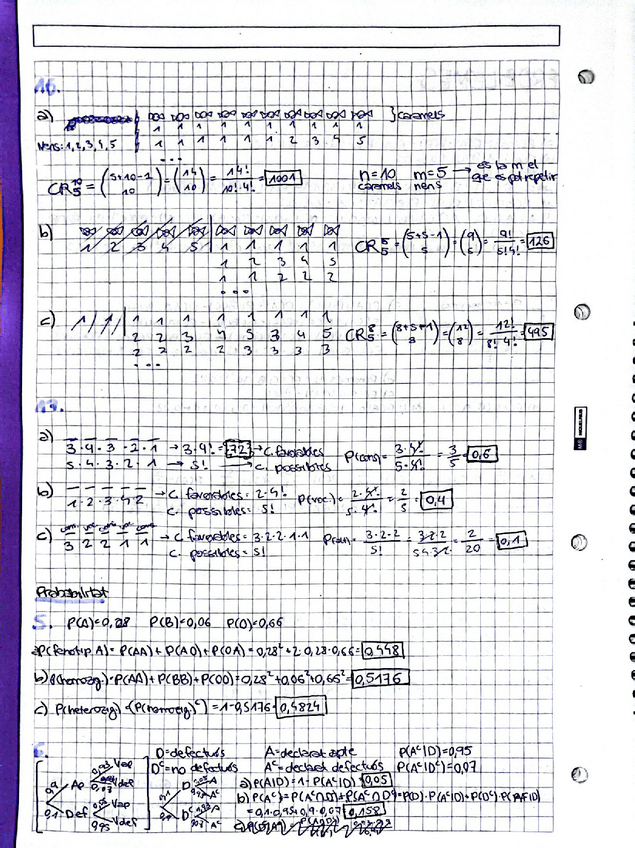 16.
a) } caramels
1 1 1 1 1 1 1 1 1 1
Nens: 1, 2, 3, 4, 5 1 1 1 1 1 1 2 3 4 5
...
CR₅¹⁰ = (5+10-1 / 10) = (14 / 10) = 14! / 10!·4! = 1001 n=10 caramels m=5 nens → és la m el que es pot repetir
b) 1 2 3 4 5 | 1 1 1 1 1 1
1 2 3 4 5
1 1 2 2 2
...
CR₅⁵ = (5+5-1 / 5) = (9 / 5) = 9! / 5!4! = 126
c) 1 / 1 / 1 1 1 1 1 1 1 1
2 2 3 4 5 3 4 5
2 2 2 2 3 3 3 3
...
CR₅⁸ = (8+5-1 / 8) = (12 / 8) = 12! / 8! 4! = 495
17.
a) 3·4·3·2·1 → 3·4! = 72 → c. favorables
5·4·3·2·1 → 5! → c. possibles P(cons) = 3·4! / 5·4! = 3/5 = 0,6
b) 1·2·3·4·2 → c. favorables = 2·4!
c. possibles = 5! P(voc.) = 2·4! / 5·4! = 2/5 = 0,4
c) cons voc cons voc cons
3 2 2 1 1 → c. favorables = 3·2·2·1·1
c. possibles = 5! = 3·2·2 / 5! = 3·2·2 / 5·4·3·2 = 2/20 = 0,1
Probabilitat
5. P(A)=0,28 P(B)=0,06 P(O)=0,66
a) P(fenotip A) = P(AA) + P(AO) + P(OA) = 0,28² + 2·0,28·0,66 = 0,448
b) P(homozig) = P(AA) + P(BB) + P(OO) = 0,28² + 0,06² + 0,66² = 0,5176
c) P(heterozig) = P(homozig)ᶜ) = 1-0,5176 = 0,4824
6.
D = defectuós A = declarat apte P(Aᶜ|D) = 0,95
Dᶜ = no defectuós Aᶜ = declarat defectuós P(Aᶜ|Dᶜ) = 0,07
a) P(A|D) = 1 - P(Aᶜ|D) = 0,05
b) P(Aᶜ) = P(Aᶜ∩D) + P(Aᶜ∩Dᶜ) = P(D)·P(Aᶜ|D) + P(Dᶜ)·P(Aᶜ|Dᶜ)
= 0,1·0,95 + 0,9·0,07 = 0,158